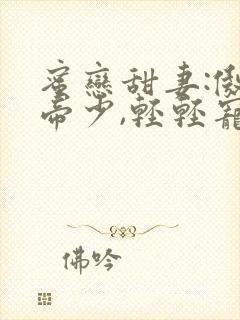 蜜戀甜妻:傲
帝少,輕輕寵
佛吟